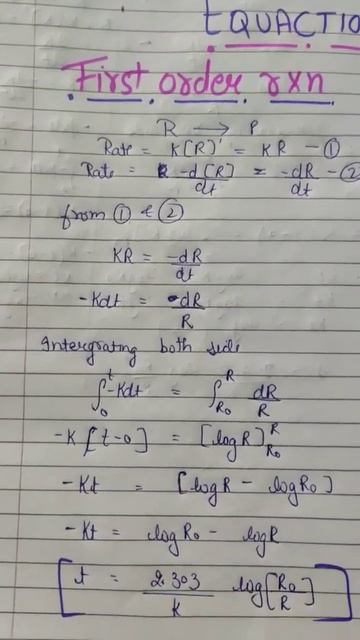 EQUACTIO
First order rxn
R → P
Rate = K[R]' = KR - ①
Rate = -d[R]/dt = -dR/dt - ②
from ① & ②
KR = -dR/dt
-Kdt = dR/R
Intergrating both side
∫₀ᵗ -Kdt = ∫_R₀^R dR/R
-K[t-0] = [log R]_R₀^R
-Kt = [log R - log R₀]
-Kt = log R₀ - log R
t = 2.303/k log[R₀/R]